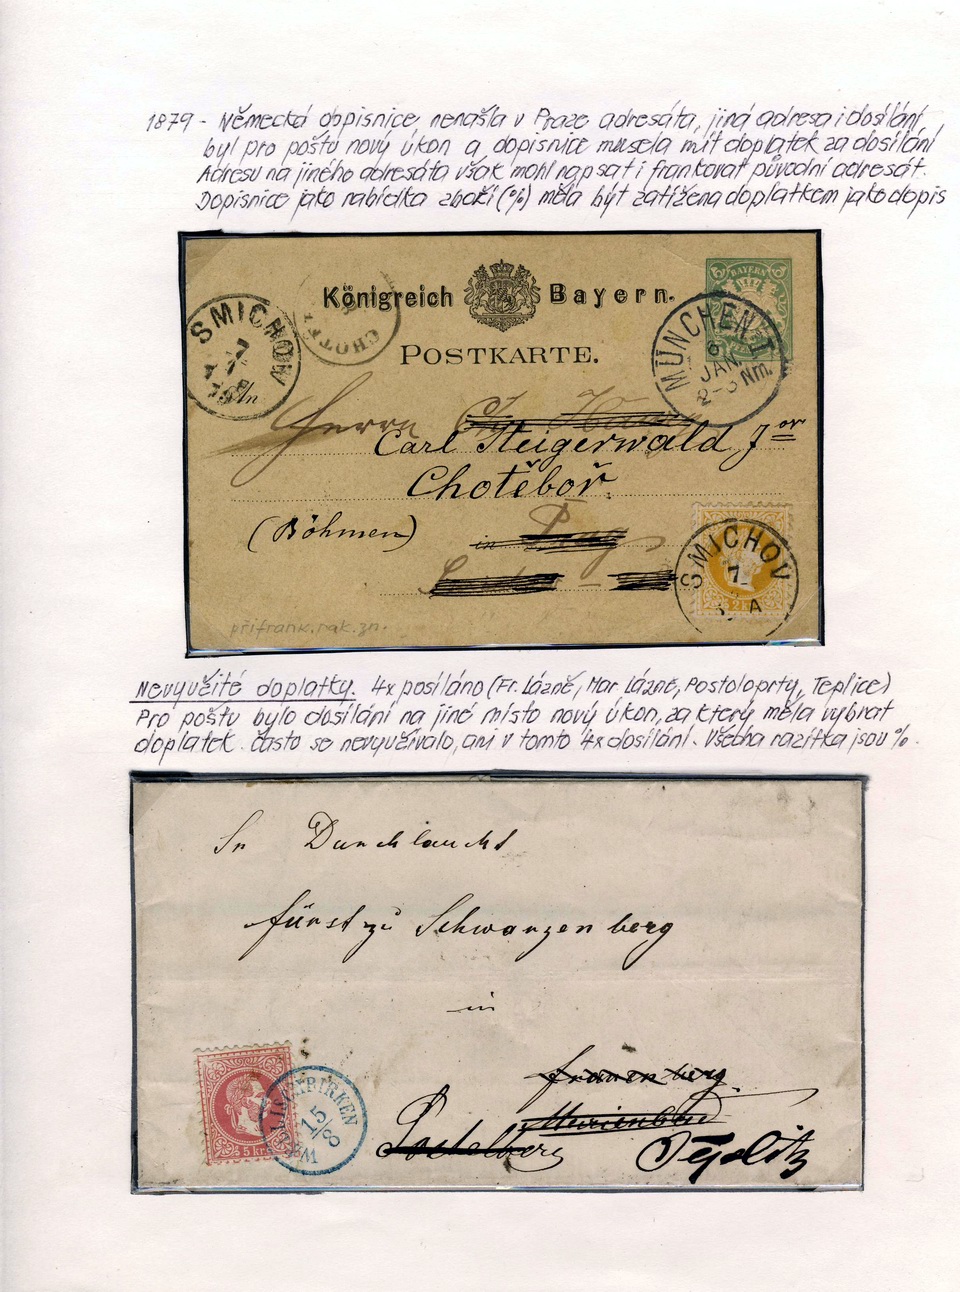 1879 - Německá dopisnice nenašla v Praze adresáta, jiná adresa i dosílání
byl pro poštu nový úkon a dopisnice musela mít doplatek za dosílání
Adresu na jiného adresáta však mohl napsat i frankovat původní adresát.
Dopisnice jako nabídka zboží (%) měla být zatížena doplatkem jako dopis
Königreich Bayern.
BAYERN
5 5
SMICHOW
7
1
CHOTĚ
POSTKARTE.
MÜNCHEN I
6
JAN.
2-3 Nm.
Herrn
Carl Steigerwald Jor
Chotěboř
(Böhmen)
in Prag
SMICHOV
7
A
2 kr
přifrank. rak. zn.
Nevyučité doplatky. 4x posíláno (Fr. Lázně, Mar. Lázně, Postoloprty, Teplice)
Pro poštu bylo dosílání na jiné místo nový úkon, za který měla vybrat
doplatek. často se nevyužívalo, ani v tomto 4x dosílání. Všecha razítka jsou %.
Sr Durchlaucht
fürst zu Schwarzenberg
in
frauenberg
Marienbad
Postelberg
Teplitz
5 kr
15/8